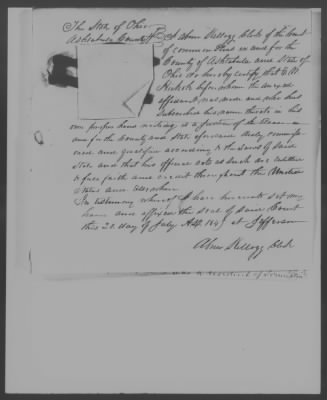 The State of Ohio
Ashtabula County SS
I Abner Kellogg Clerk of the Court
of common Pleas in and for the
County of Ashtabula and State of
Ohio do hereby certify that E. W.
before whom the annexed
affidavit was made and who has
Subscribed his name thereto in his
own proper hand writing is a Justice of the Peace in
and for the County and State aforesaid duly commiss
ioned and qualified according to the Laws of Said
State and that his official acts as such are entitled
to full faith and credit throughout the United
States and elsewhere
In testimony whereof I have hereunto set my
hand and affixed the Seal of said Court
this 20 day of July AD. at Jefferson
Abner Kellogg Clerk